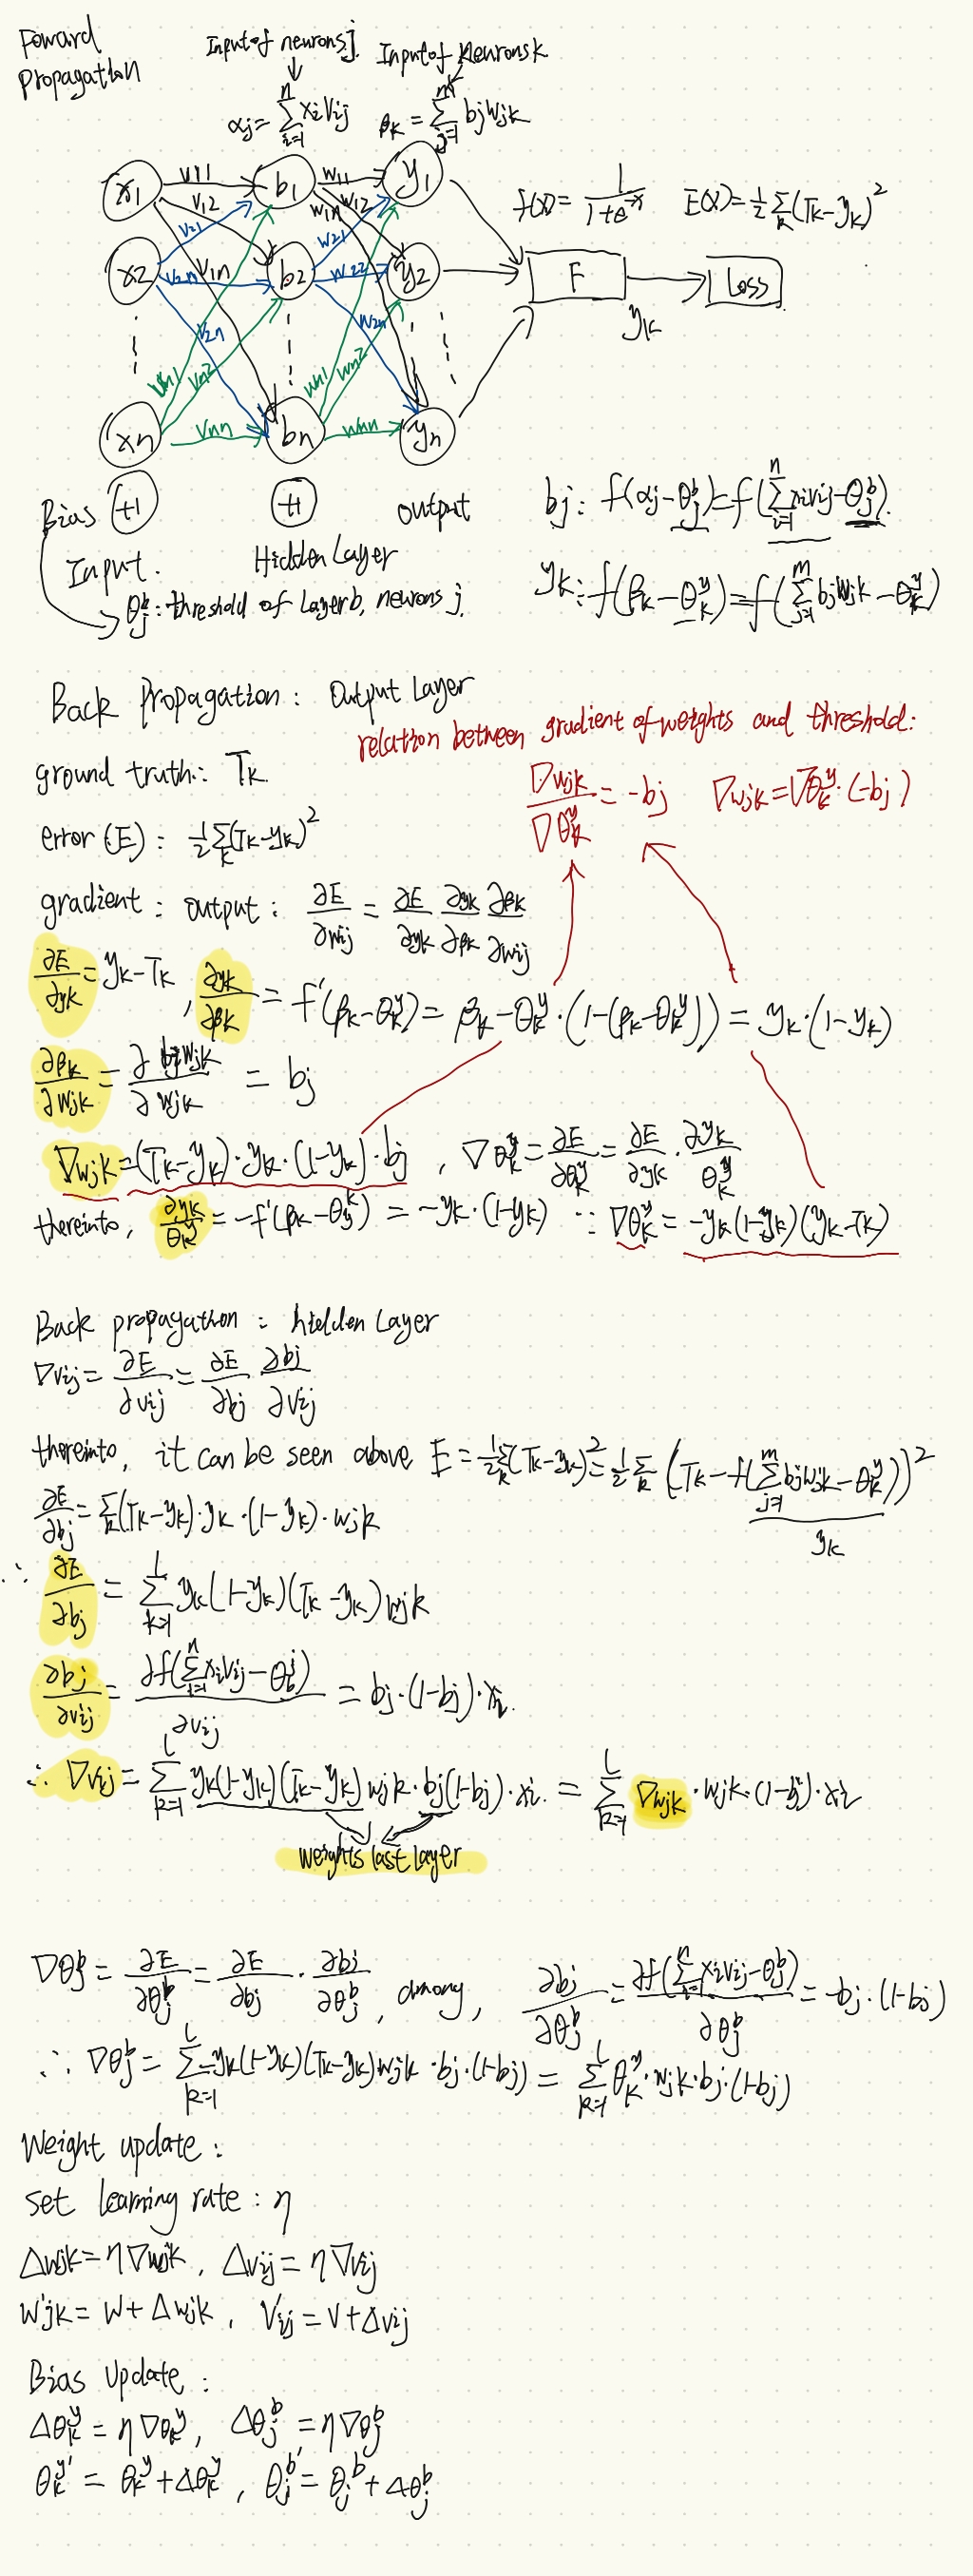 Foward
Propagation
Input of neurons j. Input of Neurons k
αj = Σ_{i=1}^{n} xi Vij    βk = Σ_{j=1}^{m} bj Wjk
x1 V11 b1 W11 y1
V12 W12 W1n
V21 W21
x2 V2n V1n b2 W22 y2
V2n W2n
Vn1 Vn2 Wn1 Wn2
xn Vnn bn Wnn yn
f(x) = 1/(1+e^{-x})    E(x) = ½ Σ_k (Tk-yk)²
F yk Loss
Bias +1 +1 output
Input. Hidden Layer
θ_j^b : threshold of Layer b, neurons j.
bj : f(αj-θ_j^b) = f(Σ_{i=1}^{n} xivij-θ_j^b).
yk : f(βk-θ_k^y) = f(Σ_{j=1}^{m} bjWjk-θ_k^y)
Back Propagation : Output Layer
relation between gradient of weights and threshold:
ground truth: Tk.
∇wjk/∇θ_k^y = -bj    ∇wjk = ∇θ_k^y·(-bj)
error (E) : ½ Σ_k (Tk-yk)²
gradient : output : ∂E/∂wij = ∂E/∂yk ∂yk/∂βk ∂βk/∂wij
∂E/∂yk = yk-Tk , ∂yk/∂βk = f'(βk-θ_k^y) = βk-θ_k^y·(1-(βk-θ_k^y)) = yk·(1-yk)
∂βk/∂wjk = ∂ bjwjk/∂wjk = bj
∇wjk = (Tk-yk)·yk·(1-yk)·bj , ∇θ_k^y = ∂E/∂θ_k^y = ∂E/∂yk · ∂yk/θ_k^y
thereinto, ∂yk/θ_k^y = -f'(βk-θ_y^k) = -yk·(1-yk) ∵ ∇θ_k^y = -yk(1-yk)(yk-Tk)
Back propagation : hidden Layer
∇vij = ∂E/∂vij = ∂E/∂bj ∂bj/∂vij
thereinto, it can be seen above E = ½ Σ_k (Tk-yk)² = ½ Σ_k (Tk-f(Σ_{j=1}^{m} bjwjk-θ_k^y))²
yk
∂E/∂bj = Σ_k (Tk-yk)·yk·(1-yk)·wjk
∴ ∂E/∂bj = Σ_{k=1}^{l} yk(1-yk)(Tk-yk)wjk
∂bj/∂vij = ∂f(Σ_{i=1}^{n} xivij-θ_b^j)/∂vij = bj·(1-bj)·xi.
∴ ∇vij = Σ_{k=1}^{l} yk(1-yk)(Tk-yk)wjk·bj(1-bj)·xi. = Σ_{k=1}^{l} ∇wjk·wjk·(1-bj)·xi
weights last layer
∇θ_j^b = ∂E/∂θ_j^b = ∂E/∂bj · ∂bj/∂θ_j^b , among, ∂bj/∂θ_j^b = ∂f(Σ_{i=1}^{n} xivij-θ_j^b)/∂θ_j^b = -bj·(1-bj)
∴ ∇θ_j^b = Σ_{k=1}^{l} -yk(1-yk)(Tk-yk)wjk·bj·(1-bj) = Σ_{k=1}^{l} θ_k^y·wjk·bj·(1-bj)
Weight update :
set learning rate : η
Δwjk = η∇wjk, Δvij = η∇vij
w'jk = w+Δwjk, v'ij = v+Δvij
Bias Update :
Δθ_k^y = η∇θ_k^y, Δθ_j^b = η∇θ_j^b
θ_k^y' = θ_k^y+Δθ_k^y, θ_j^b' = θ_j^b+Δθ_j^b